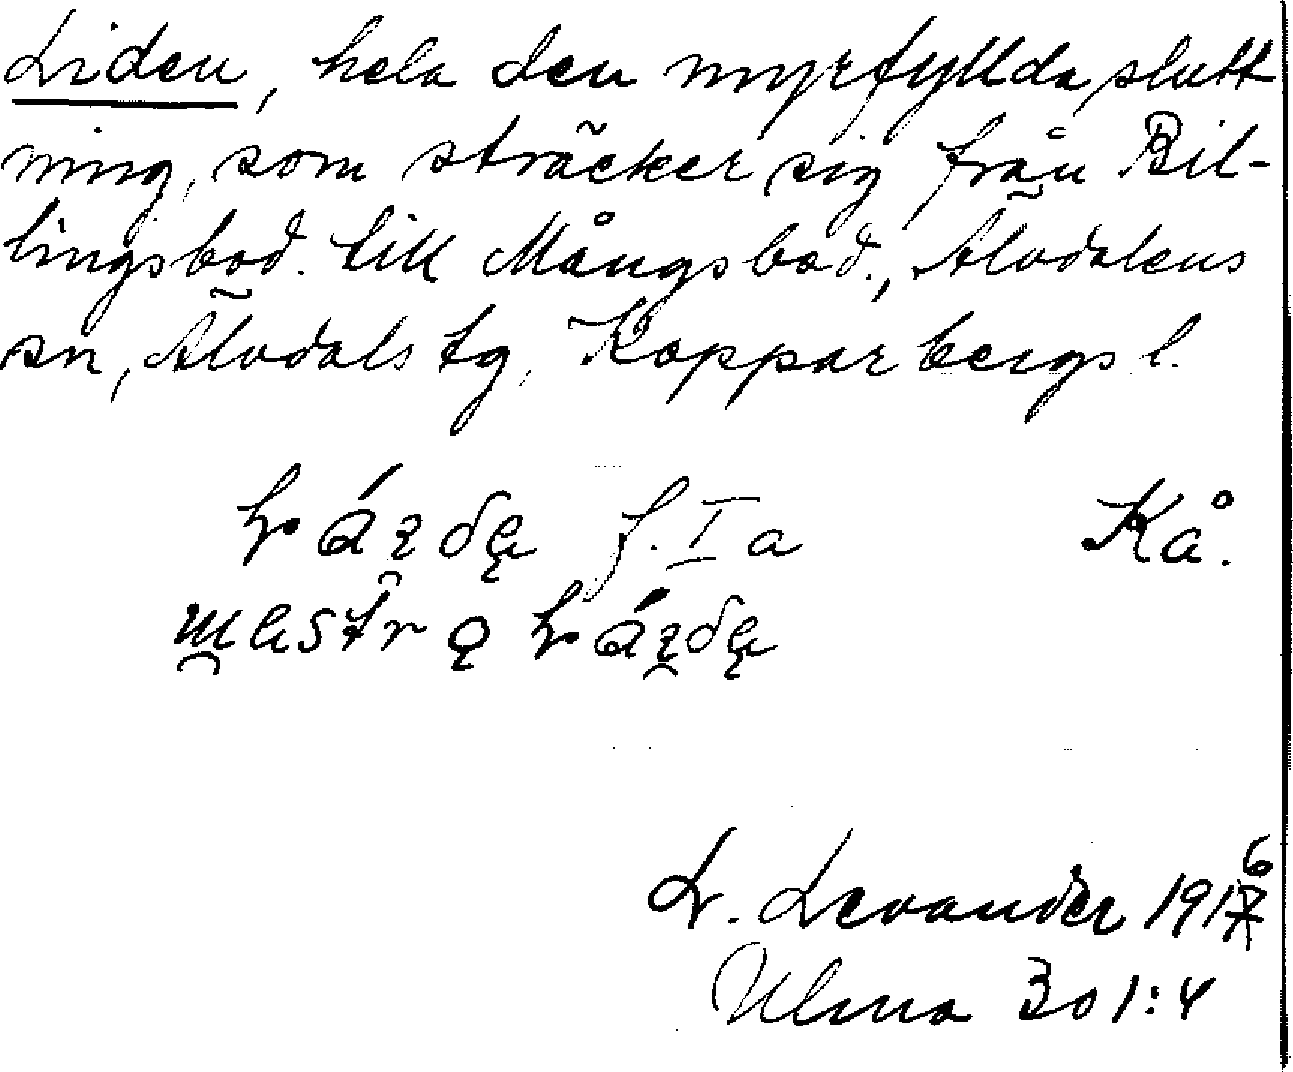 Liden, hela den myrfyllda slutt
ning, som sträcker sig från Bil-
lingsbod. till Mångsbod., Älvdalens
sn, Älvdals tg, Kopparbergs l.
f. I a Kå.
L. Levander 1916
Ulma 301:4